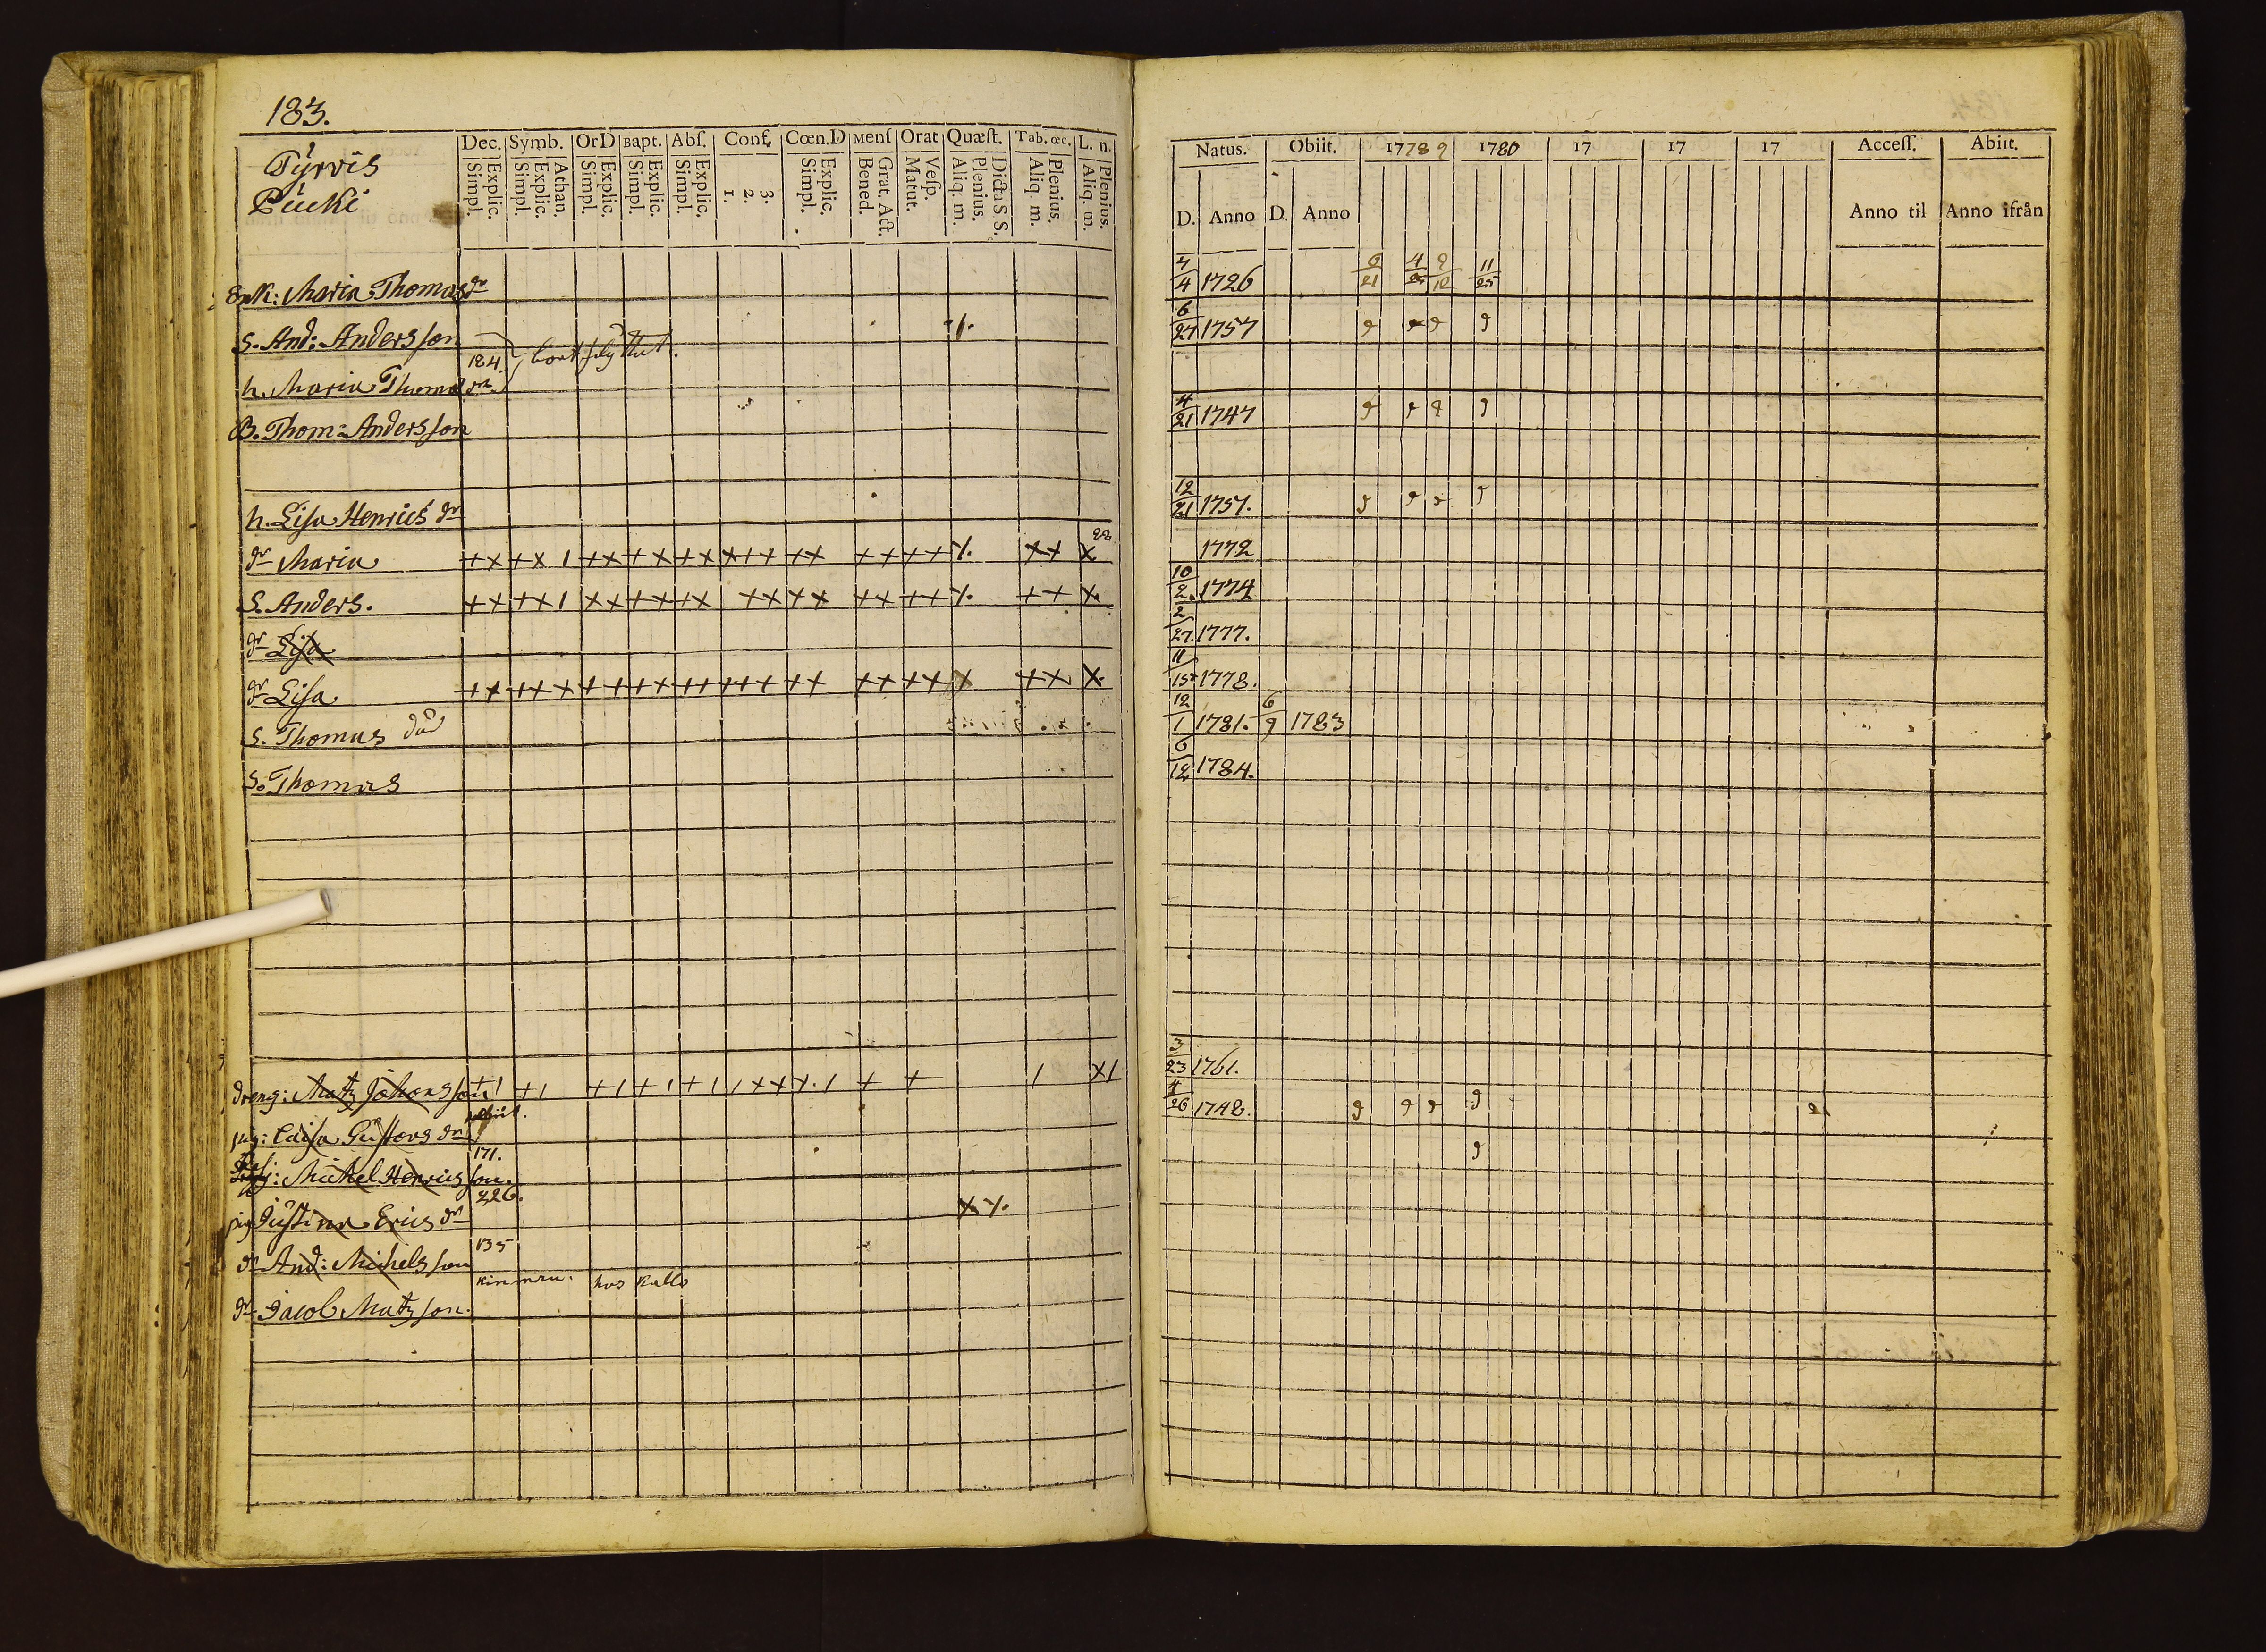 183.
Dec. Symb. OrD Bapt. Abſ. Conf. Cœn.D Menſ Orat Quæſt. Tab. œc. L. n.
Explic. Simpl. Athan. Explic. Simpl. Explic. Simpl. Explic. Simpl. Explic. Simpl. 3. 2. 1. Explic. Simpl. Grat. Act. Bened. Veſp. Matut. Dicta S S. Plenius. Aliq. m. Plenius. Aliq. m. Plenius. Aliq. m.
Tyrvis
Pücki
Enk: Maria Thomædr
S. And: Andersson
184. bortflyttat.
h. Maria Thomædr
B. Thom: Andersson
h. Lisa Henricsdr
dr Maria
S. Anders.
dr Lisa
dr Lisa
S. Thomas död
S. Thomas
dreng: Matz Johansson
pig: Caisa Gustavsdr
171.
Michel Henricsson.
226.
pig Justina Ericsdr
135
dr And: Michelsson
hos Kallo
dr Jacob Matzson.
Natus. Obiit. 17789 1780 17 17 17 Acceſſ. Abiit.
D. Anno D. Anno Anno til Anno ifrån
4/4 1726 9/21 4/25 9/12 11/25
6/27 1757
4/21 1747
12/21 1751.
1772
10/2. 1774
2/27. 1777.
11/15 1778.
12/1 1781. 6/9 1783
6/12 1784.
3/23 1761.
4/26 1748.